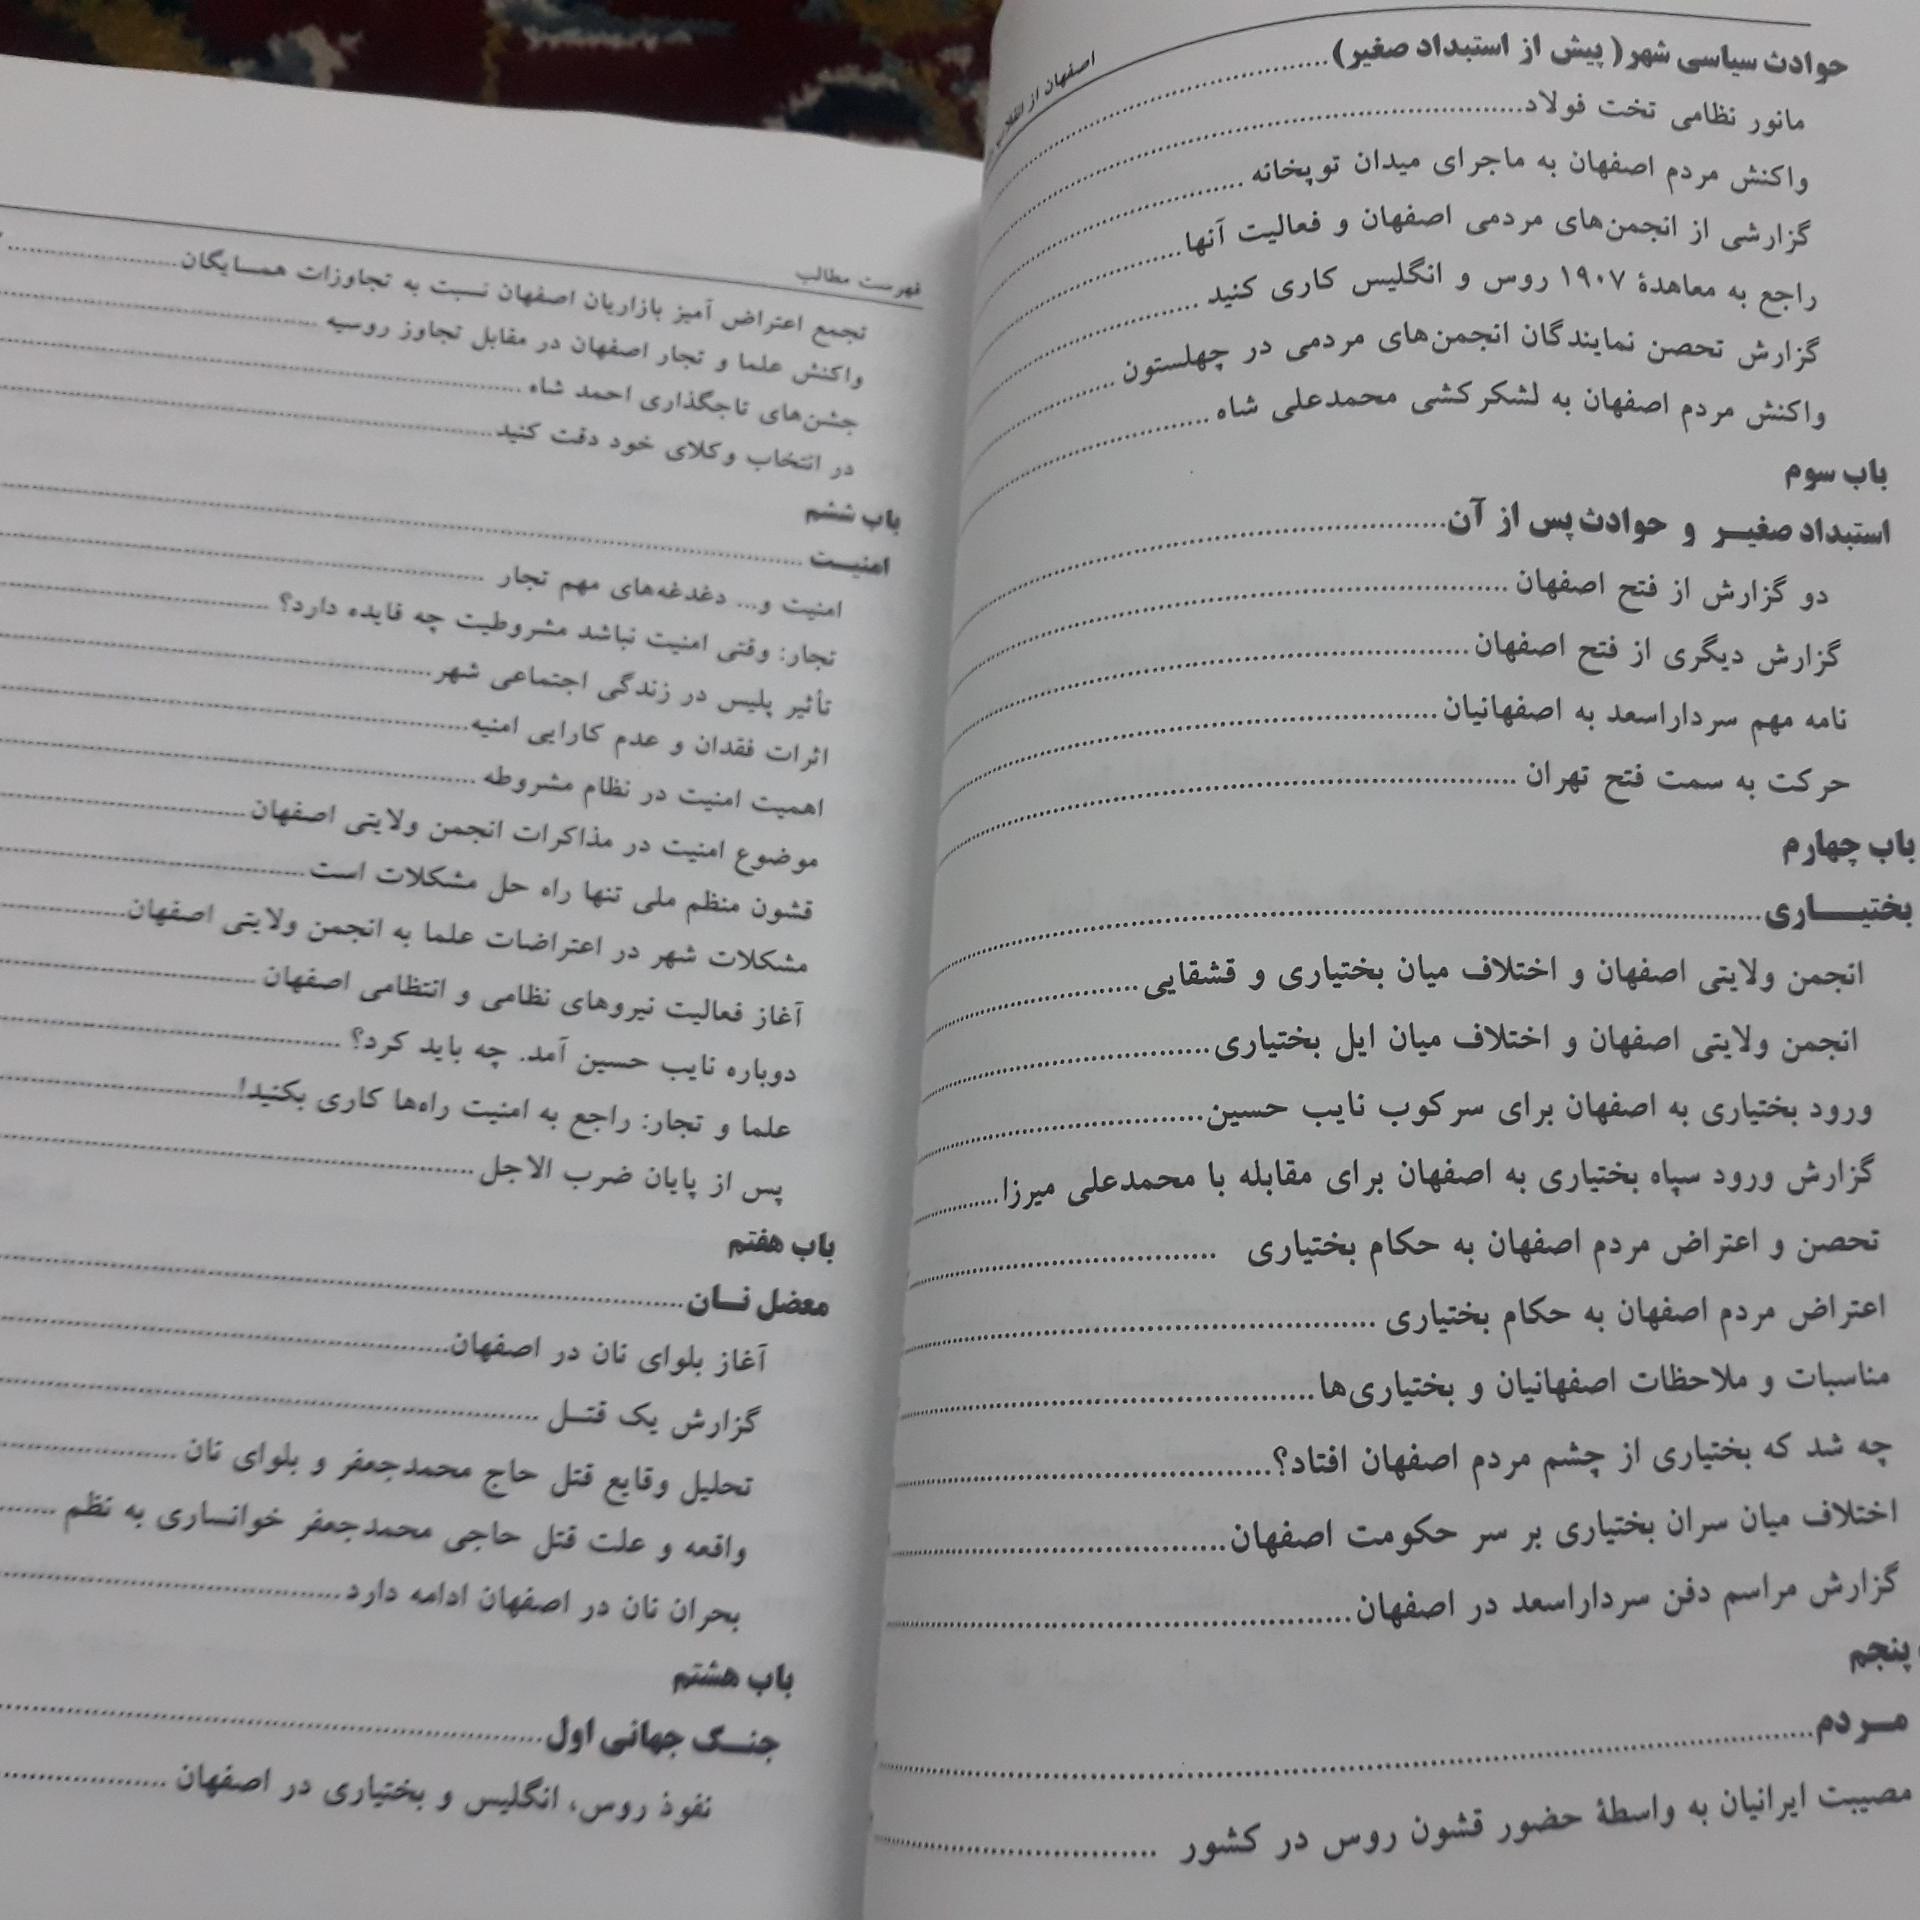 اصفهان از انقلاب
حوادث سیاسی شهر( پیش از استبداد صغیر)
مانور نظامی تخت فولاد
واکنش مردم اصفهان به ماجرای میدان توپخانه
گزارشی از انجمن‌های مردمی اصفهان و فعالیت آنها
راجع به معاهدهٔ ۱۹۰۷ روس و انگلیس کاری کنید
گزارش تحصن نمایندگان انجمن‌های مردمی در چهلستون
واکنش مردم اصفهان به لشکرکشی محمدعلی شاه
باب سوم
استبداد صغیـر و حوادث پس از آن
دو گزارش از فتح اصفهان
گزارش دیگری از فتح اصفهان
نامه مهم سرداراسعد به اصفهانیان
حرکت به سمت فتح تهران
باب چهارم
بختیـــاری
انجمن ولایتی اصفهان و اختلاف میان بختیاری و قشقایی
انجمن ولایتی اصفهان و اختلاف میان ایل بختیاری
ورود بختیاری به اصفهان برای سرکوب نایب حسین
گزارش ورود سپاه بختیاری به اصفهان برای مقابله با محمدعلی میرزا
تحصن و اعتراض مردم اصفهان به حکام بختیاری
اعتراض مردم اصفهان به حکام بختیاری
مناسبات و ملاحظات اصفهانیان و بختیاری‌ها
چه شد که بختیاری از چشم مردم اصفهان افتاد؟
اختلاف میان سران بختیاری بر سر حکومت اصفهان
گزارش مراسم دفن سرداراسعد در اصفهان
پنجم
مـردم
مصیبت ایرانیان به واسطهٔ حضور قشون روس در کشور
فهرست مطالب
تجمع اعتراض آمیز بازاریان اصفهان نسبت به تجاوزات همسایگان
واکنش علما و تجار اصفهان در مقابل تجاوز روسیه
جشن‌های تاجگذاری احمد شاه
در انتخاب وکلای خود دقت کنید
باب ششم
امنیـت
امنیت و... دغدغه‌های مهم تجار
تجار: وقتی امنیت نباشد مشروطیت چه فایده دارد؟
تأثیر پلیس در زندگی اجتماعی شهر
اثرات فقدان و عدم کارایی امنیه
اهمیت امنیت در نظام مشروطه
موضوع امنیت در مذاکرات انجمن ولایتی اصفهان
قشون منظم ملی تنها راه حل مشکلات است
مشکلات شهر در اعتراضات علما به انجمن ولایتی اصفهان
آغاز فعالیت نیروهای نظامی و انتظامی اصفهان
دوباره نایب حسین آمد. چه باید کرد؟
علما و تجار: راجع به امنیت راه‌ها کاری بکنید!
پس از پایان ضرب الاجل
باب هفتم
معضل نـان
آغاز بلوای نان در اصفهان
گزارش یک قتـل
تحلیل وقایع قتل حاج محمدجعفر و بلوای نان
واقعه و علت قتل حاجی محمدجعفر خوانساری به نظم
بحران نان در اصفهان ادامه دارد
باب هشتم
جنـگ جهانی اول
نفوذ روس، انگلیس و بختیاری در اصفهان